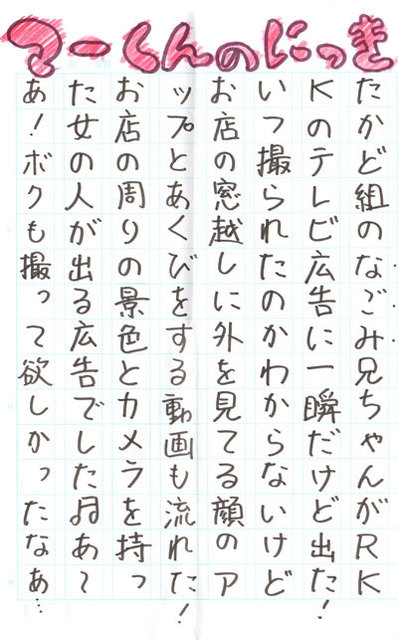 マーくんのにっき
たかど組のなごみ兄ちゃんがRK
Kのテレビ広告に一瞬だけど出た!
いつ撮られたのかわからないけど
お店の窓越しに外を見てる顔のア
ップとあくびをする動画も流れた!
お店の周りの景色とカメラを持っ
た女の人が出る広告でした♫あ~
あ!ボクも撮って欲しかったなぁ…